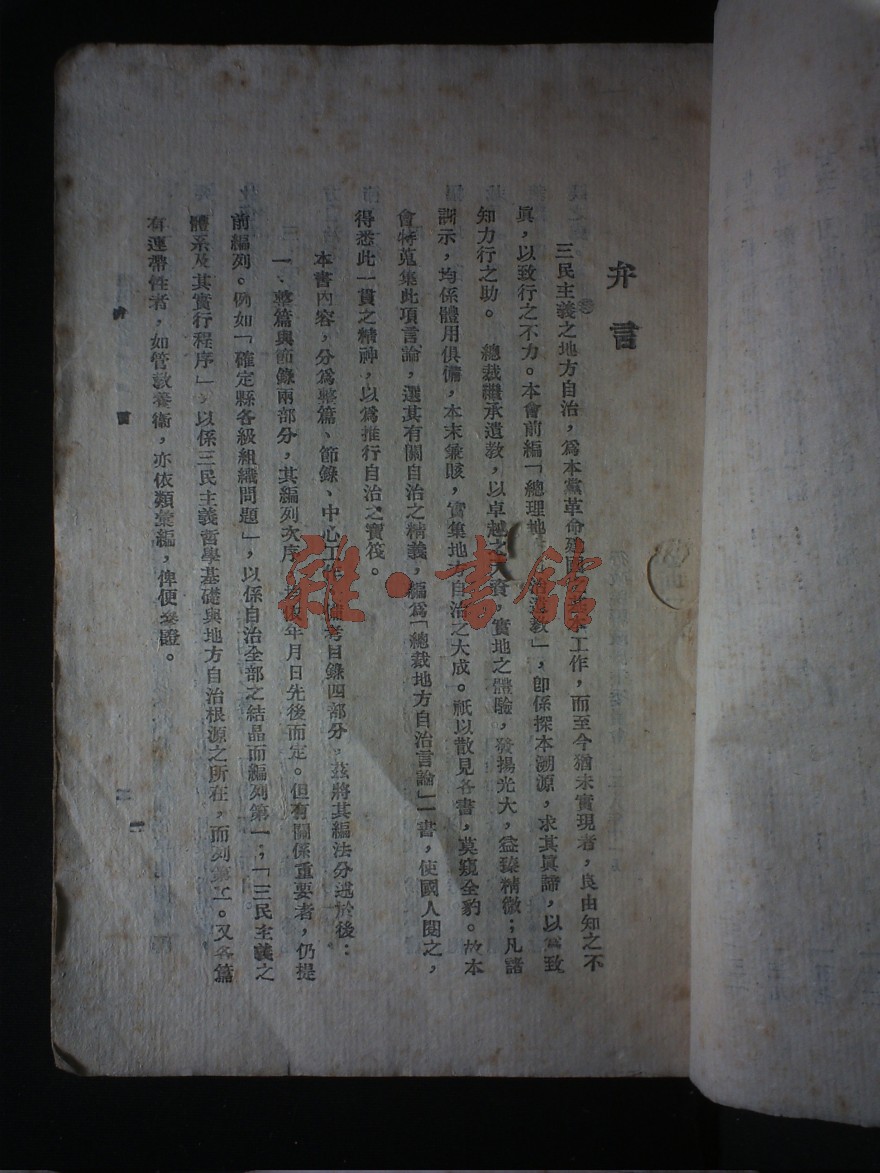 弁言
三民主義之地方自治，為本黨革命建國之基本工作，而至今猶未實現者，良由知之不
真，以致行之不力。本會前編「總理地方自治遺教」，即係探本溯源，求其真諦，以為致
知力行之助。　總裁繼承遺教，以卓越之天資，實地之體驗，發揚光大，益臻精微；凡諸
訓示，均係體用俱備，本末兼賅，實集地方自治之大成。祇以散見各書，莫窺全豹。故本
會特蒐集此項言論，選其有關自治之精義，編為「總裁地方自治言論」一書，使國人閱之，
得悉此一貫之精神，以為推行自治之寶筏。
本書內容，分為整篇、節錄、中心工作、備考目錄四部分，茲將其編法分述於後：
一、整篇與節錄兩部分，其編列次序，均依年月日先後而定。但有關係重要者，仍提
前編列。例如「確定縣各級組織問題」，以係自治全部之結晶而編列第一；「三民主義之
體系及其實行程序」，以係三民主義哲學基礎與地方自治根源之所在，而列第二。又各篇
有連帶性者，如管教養衛，亦依類彙編，俾便參證。
弁言
一
雜·書館